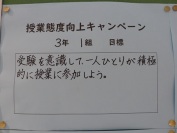 授業態度向上キャンペーン
3年 1組 目標
受験を意識して、一人ひとりが積極
的に授業に参加しよう。